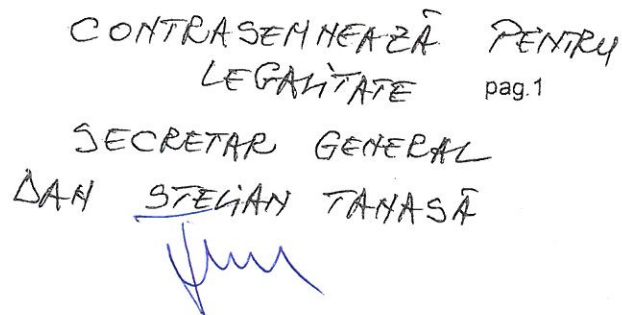 CONTRASEMNEAZĂ PENTRU
LEGALITATE pag.1
SECRETAR GENERAL
DAN STELIAN TANASĂ